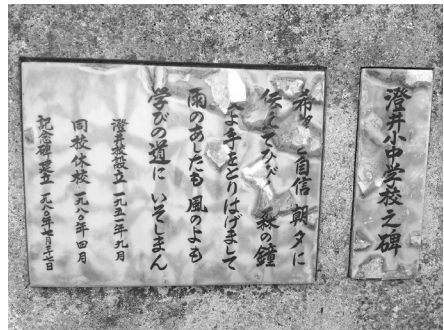 澄井小中学校之碑
希望と自信 朝夕に
伝えてひびく 森の鐘
いざよ手をとりはげまして
雨のあしたも 風のよも
学びの道に いそしまん
澄井校設立 一九五一年九月
同校休校 一九八〇年四月
記念碑建立 一九八〇年七月二十七日